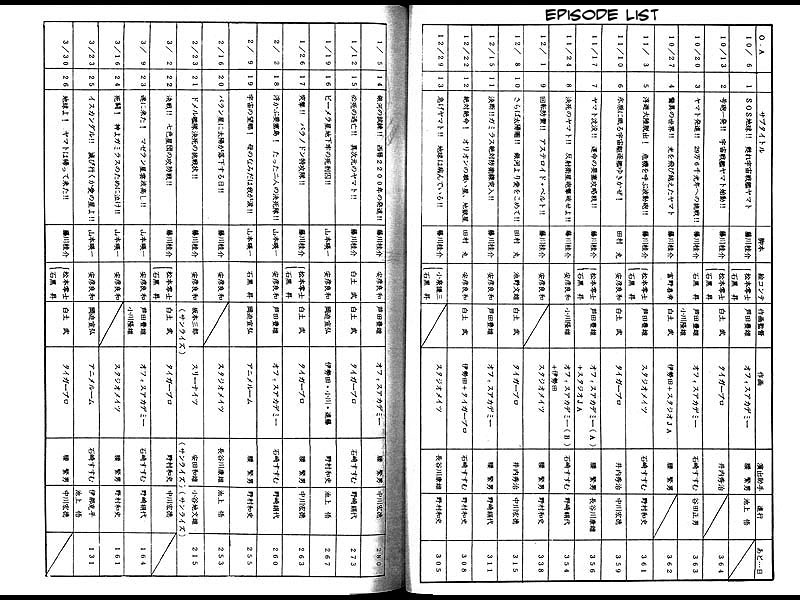 EPISODE LIST
O.A サブタイトル 脚本 絵コンテ 作画監督 作画 演出助手 進行 あと…日
10/6 1 SOS地球!! 甦れ宇宙戦艦ヤマト 藤川桂介 松本零士 石黒昇 白土武 タイガープロ 腰繁男 池上悟
10/13 2 号砲一発!! 宇宙戦艦ヤマト始動!! 藤川桂介 松本零士 白土武 タイガープロ 364
10/20 3 ヤマト発進!! 29万6千光年への挑戦!! 藤川桂介 石黒昇 芦田豊雄 小川隆雄 オフィスアカデミー 石崎すすむ 谷田正男 363
10/27 4 驚異の世界!! 光を飛び越えたヤマト 藤川桂介 富野喜幸 白土武 伊勢田+スタジオJA 腰繁男 362
11/3 5 浮遊大陸脱出!! 危機を呼ぶ波動砲!! 藤川桂介 松本零士 石黒昇 スタジオメイツ 石崎すすむ 野村和史 361
11/10 6 氷原に眠る宇宙駆逐艦ゆきかぜ! 田村丸 安彦良和 白土武 タイガープロ 中川宏徳 359
11/17 7 ヤマト沈没!! 運命の要塞攻略戦!! 藤川桂介 松本零士 石黒昇 芦田豊雄 オフィスアカデミー(A)+スタジオJA 腰繁男 長谷川康雄 356
11/24 8 決死のヤマト!! 反射衛星砲撃破せよ!! 藤川桂介 安彦良和 小川隆雄 オフィスアカデミー(B)+伊勢田 石崎すすむ 野村和史 354
12/1 9 回転防禦!! アステロイド・ベルト!! 藤川桂介 安彦良和 スタジオメイツ 腰繁男 野村和史 338
12/8 10 さらば太陽圏!! 銀河より愛をこめて!! 田村丸 白土武 タイガープロ 中川宏徳 315
12/15 11 決断!!ガミラス絶対防衛線突入!! 藤川桂介 安彦良和 芦田豊雄 オフィスアカデミー 腰繁男 野村和史 311
12/22 12 絶対絶命!! オリオンの願い星、地獄星 田村丸 安彦良和 白土武 伊勢田+タイガープロ 石崎すすむ 野村和史 308
12/29 13 急げヤマト!! 地球は病んでいる!! 藤川桂介 石黒昇 スタジオメイツ 長谷川康雄 野村和史 305
1/5 14 銀河の試練!! 西暦2200年の発進!! 藤川桂介 安彦良和 芦田豊雄 オフィスアカデミー 腰繁男 中川宏徳
1/12 15 必死の逃亡!! 異次元のヤマト!! 藤川桂介 白土武 白土武 タイガープロ 石崎すすむ 野崎頑代 273
1/19 16 ビーメラ星地下牢の死刑囚!! 山本暎一 安彦良和 岡迫亘弘 伊勢田・小川・遠藤 腰繁男 野村和史 267
1/26 17 突撃!! バラノドン特攻隊!! 藤川桂介 松本零士 石黒昇 白土武 タイガープロ 腰繁男 中川宏徳 263
2/2 18 浮かぶ要塞島! たった二人の決死隊!! 山本暎一 安彦良和 芦田豊雄 オフィスアカデミー 石崎すすむ 野崎頑代 260
2/9 19 宇宙の望郷! 母のなみだは我が涙!! 山本暎一 石黒昇 岡迫亘弘 アニメルーム 腰繁男 野村和史 255
2/16 20 バラン星に太陽が落下する日!! 藤川桂介 安彦良和 スタジオメイツ 長谷川康雄 池上悟 253
2/23 21 ドメル艦隊決死の挑戦状!! 藤川桂介 安彦良和 坂本三郎(サンライズ) スリーナイツ 安田和雄(サンライズ) 小谷地文雄(サンライズ) 215
3/2 22 決戦!! 七色星団の攻防戦!! 藤川桂介 松本零士 石黒昇 白土武 タイガープロ 野村和史 中川宏徳
3/9 23 遂に来た! マゼラン星雲波高し!! 藤川桂介 安彦良和 芦田豊雄 小川隆雄 オフィスアカデミー 石崎すすむ 野崎頑代 164
3/16 24 死闘! 神よガミラスのために泣け!! 山本暎一 安彦良和 スタジオメイツ 腰繁男 野村和史 161
3/23 25 イスカンダル!! 滅び行くか愛の星よ!! 山本暎一 安彦良和 岡迫亘弘 アニメルーム 石崎すすむ 131
3/30 26 地球よ! ヤマトは帰って来た!! 藤川桂介 松本零士 石黒昇 白土武 タイガープロ 腰繁男 中川宏徳